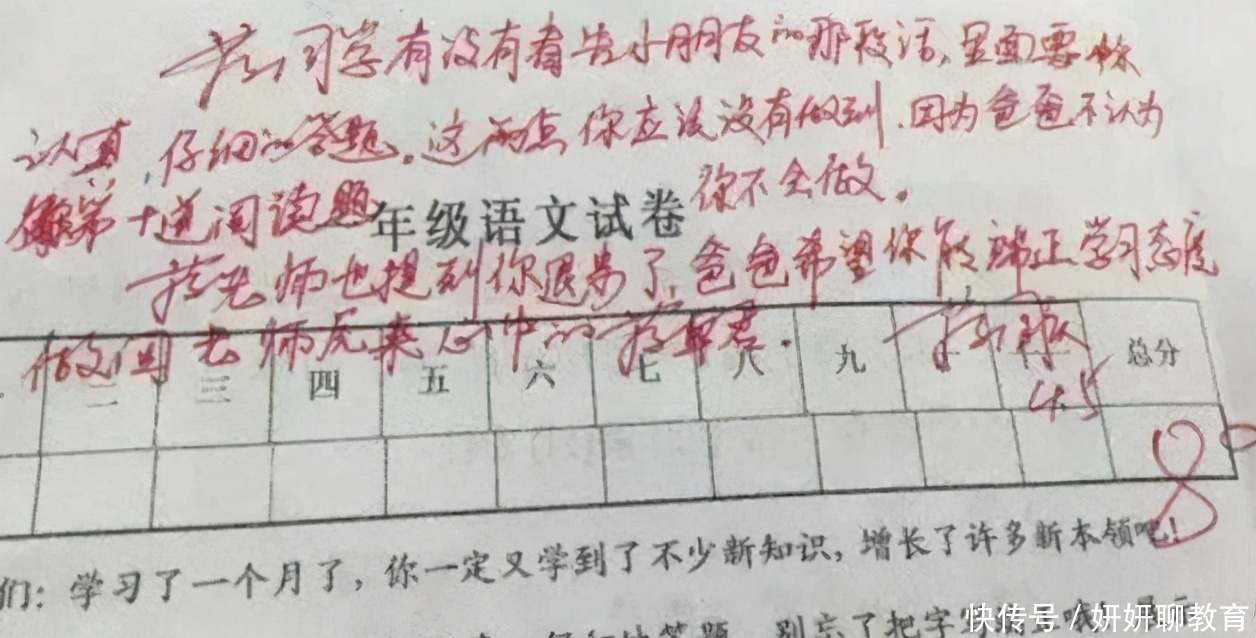 同学有没有看告小朋友的那段话,里面要你
认真,仔细的答题。这两点你应该没有做到.因为爸爸不认为
第十道阅读题你不会做。
年级语文试卷
老师也提到你退步了,爸爸希望你能端正学习态度
做回老师原来心中的
二 三 四 五 六 七 八 九 十 十一 总分
4.5
8
们:学习了一个月了,你一定又学到了不少新知识,增长了许多新本领吧!
答题,别忘了把字写
快传号/妍妍聊教育